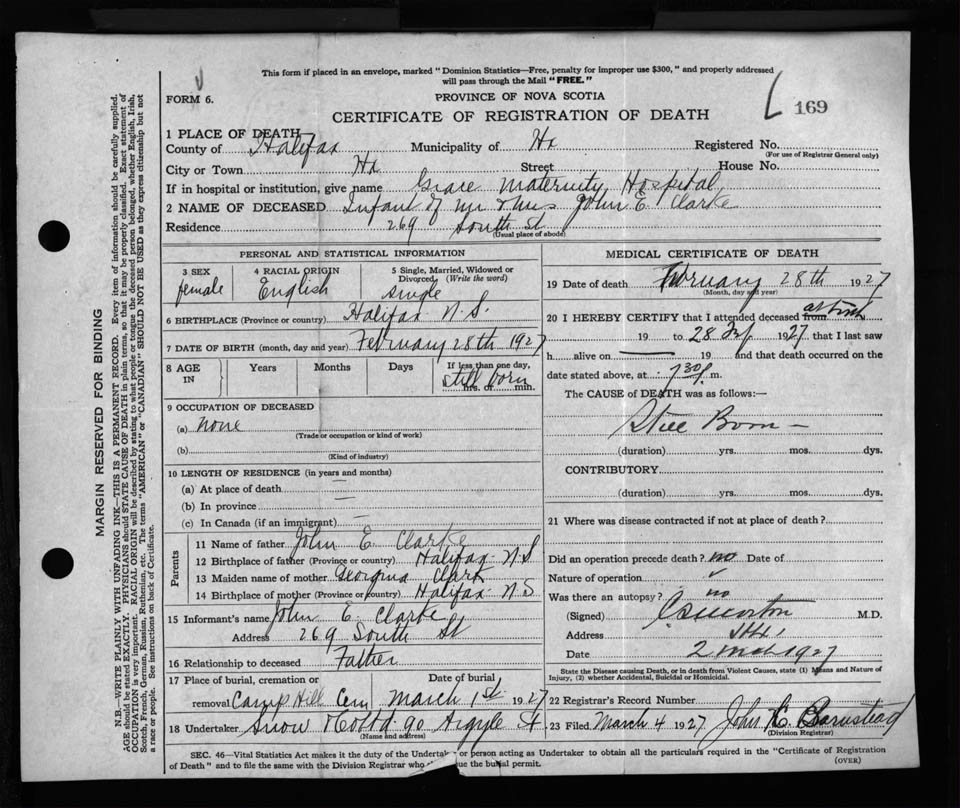 This form if placed in an envelope, marked "Dominion Statistics—Free, penalty for improper use $300," and properly addressed
will pass through the Mail "FREE."
FORM 6.
PROVINCE OF NOVA SCOTIA
169
CERTIFICATE OF REGISTRATION OF DEATH
1 PLACE OF DEATH
County of Halifax Municipality of Hx Registered No.
(For use of Registrar General only)
City or Town Hx Street House No.
If in hospital or institution, give name Grace Maternity Hospital
2 NAME OF DECEASED Infant of Mr & Mrs John E. Clarke
Residence 269 South St
(Usual place of abode)
PERSONAL AND STATISTICAL INFORMATION
3 SEX 4 RACIAL ORIGIN 5 Single, Married, Widowed or
Divorced (Write the word)
female English single
6 BIRTHPLACE (Province or country) Halifax N.S.
7 DATE OF BIRTH (month, day and year) February 28th 1927
8 AGE Years Months Days If less than one day,
IN still born
hrs. or min.
9 OCCUPATION OF DECEASED
(a) none
(Trade or occupation or kind of work)
(b)
(Kind of industry)
10 LENGTH OF RESIDENCE (in years and months)
(a) At place of death —
(b) In province —
(c) In Canada (if an immigrant) —
Parents
11 Name of father John E. Clarke
12 Birthplace of father (Province or country) Halifax N.S
13 Maiden name of mother Georgina Clark
14 Birthplace of mother (Province or country) Halifax N.S
15 Informant's name John E. Clarke
Address 269 South St
16 Relationship to deceased Father
17 Place of burial, cremation or Date of burial
removal Camp Hill Cem March 1st 1927
18 Undertaker Snow & Co Ltd 90 Argyle St
(Name and address)
MEDICAL CERTIFICATE OF DEATH
19 Date of death February 28th 1927
(Month, day and year)
20 I HEREBY CERTIFY that I attended deceased from at birth
19 to 28 1927 that I last saw
h alive on — 19 and that death occurred on the
date stated above, at 7 30 p m.
The CAUSE of DEATH was as follows:—
Still Born —
(duration) yrs. mos. dys.
CONTRIBUTORY
(duration) yrs. mos. dys.
21 Where was disease contracted if not at place of death?
Did an operation precede death? no Date of
Nature of operation
Was there an autopsy? no
(Signed) M.D.
Address Hfx.
Date 2 Mch 1927
State the Disease causing Death, or in death from Violent Causes, state (1) Means and Nature of
Injury, (2) whether Accidental, Suicidal or Homicidal.
22 Registrar's Record Number
23 Filed March 4 1927 John E. Barnstead
(Division Registrar)
SEC. 46—Vital Statistics Act makes it the duty of the Undertaker or person acting as Undertaker to obtain all the particulars required in the "Certificate of Registration
of Death" and to file the same with the Division Registrar who the burial permit.
(OVER)
MARGIN RESERVED FOR BINDING
N.B.—WRITE PLAINLY, WITH UNFADING INK—THIS IS A PERMANENT RECORD. Every item of information should be carefully supplied.
AGE should be stated EXACTLY. PHYSICIANS should STATE CAUSE OF DEATH in plain terms, so that it may be properly classified. Exact statement of
OCCUPATION is very important. RACIAL ORIGIN will be described by stating to what people or tongue the deceased person belonged, whether English, Irish,
Scotch, French, German, Russian, Ruthenian, etc. The terms "AMERICAN" or "CANADIAN" SHOULD NOT BE USED as they express citizenship but not
a race or people. See instructions on back of Certificate.